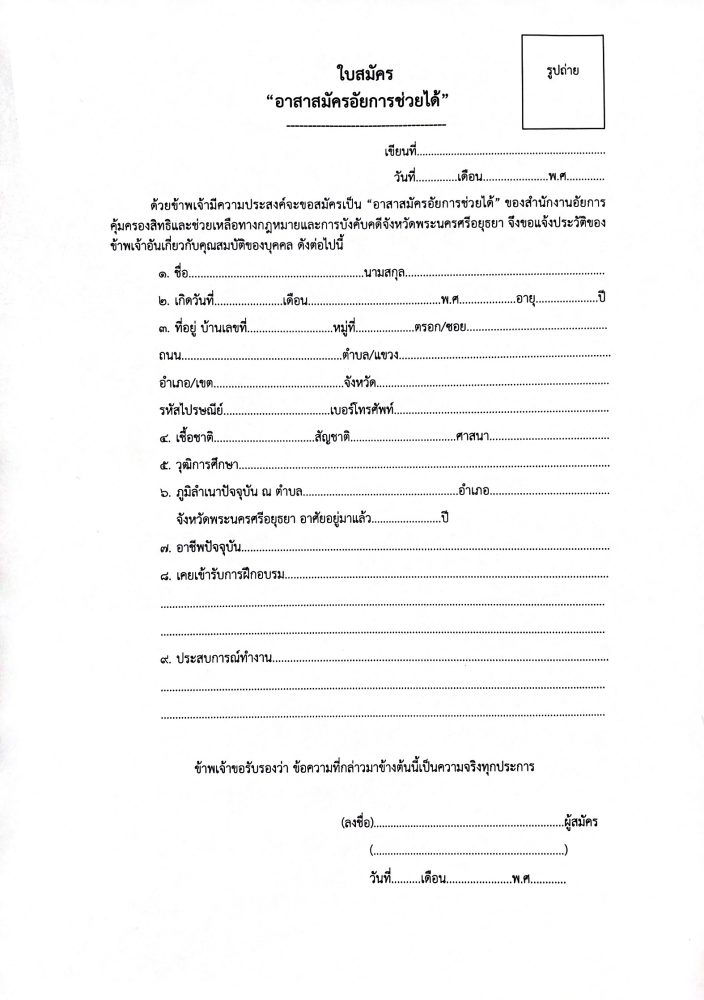 ใบสมัคร
รูปถ่าย
“อาสาสมัครอัยการช่วยได้”
------------------------------------
เขียนที่................................................................
วันที่..............เดือน......................พ.ศ.............
ด้วยข้าพเจ้ามีความประสงค์จะขอสมัครเป็น “อาสาสมัครอัยการช่วยได้” ของสำนักงานอัยการ
คุ้มครองสิทธิและช่วยเหลือทางกฎหมายและการบังคับคดีจังหวัดพระนครศรีอยุธยา จึงขอแจ้งประวัติของ
ข้าพเจ้าอันเกี่ยวกับคุณสมบัติของบุคคล ดังต่อไปนี้
๑. ชื่อ...........................................................นามสกุล...................................................................
๒. เกิดวันที่.......................เดือน.............................................พ.ศ...................อายุ.....................ปี
๓. ที่อยู่ บ้านเลขที่.............................หมู่ที่....................ตรอก/ซอย...............................................
ถนน......................................................ตำบล/แขวง.......................................................................
อำเภอ/เขต............................................จังหวัด..............................................................................
รหัสไปรษณีย์....................................เบอร์โทรศัพท์.........................................................................
๔. เชื้อชาติ..................................สัญชาติ....................................ศาสนา........................................
๕. วุฒิการศึกษา.............................................................................................................................
๖. ภูมิลำเนาปัจจุบัน ณ ตำบล.....................................................อำเภอ........................................
จังหวัดพระนครศรีอยุธยา อาศัยอยู่มาแล้ว........................ปี
๗. อาชีพปัจจุบัน............................................................................................................................
๘. เคยเข้ารับการฝึกอบรม.............................................................................................................
......................................................................................................................................................
......................................................................................................................................................
๙. ประสบการณ์ทำงาน.................................................................................................................
......................................................................................................................................................
......................................................................................................................................................
ข้าพเจ้าขอรับรองว่า ข้อความที่กล่าวมาข้างต้นนี้เป็นความจริงทุกประการ
(ลงชื่อ)................................................................ผู้สมัคร
(................................................................)
วันที่..........เดือน......................พ.ศ............